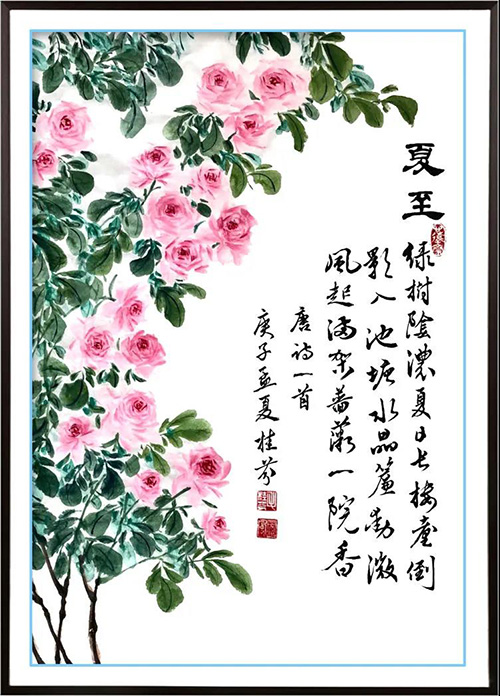 夏至
绿树陰濃夏日长楼臺倒
影入池塘水晶簾動微
風起满架蔷薇一院香
唐诗一首
庚子孟夏桂芬